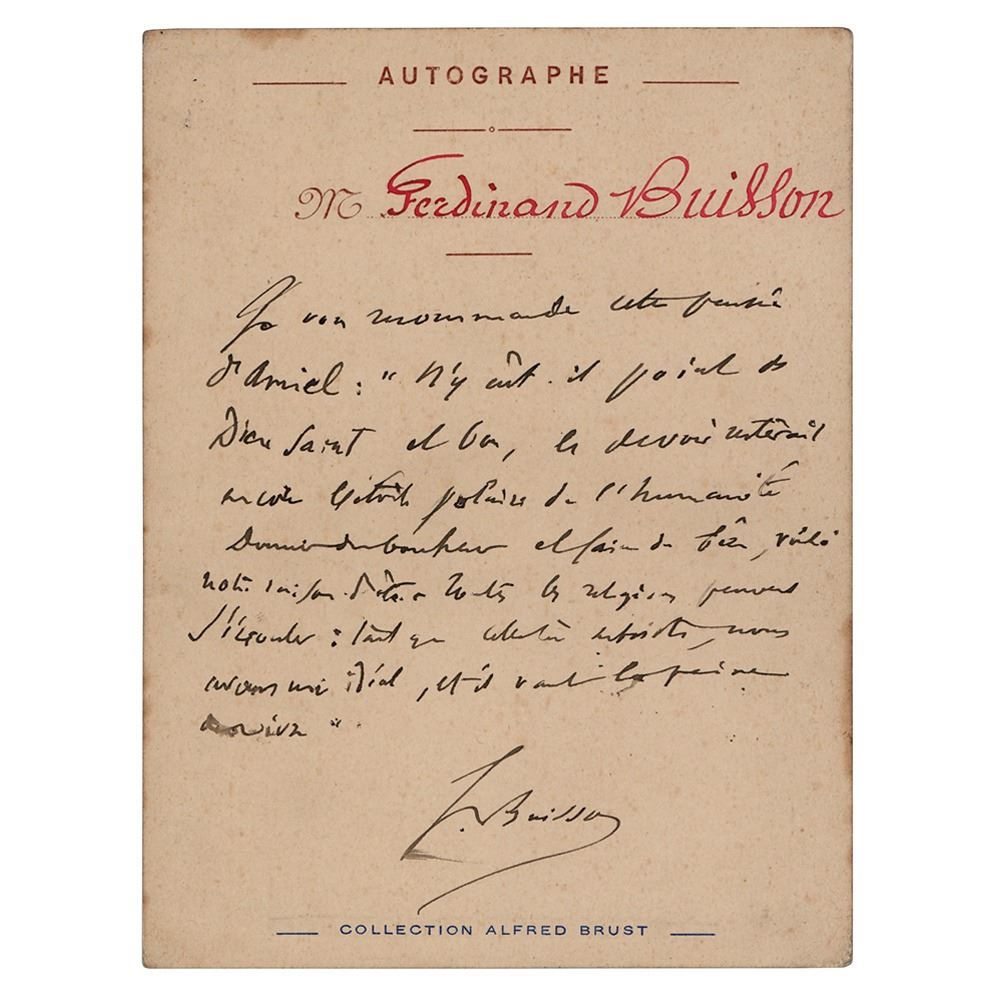 AUTOGRAPHE
M Ferdinand Buisson
Je vous recommande cette pensée
d'Amiel : " N'y eût-il point de
Dieu Saint et bon, le devoir resterait
encore l'étoile polaire de l'humanité
Donner du bonheur et faire du bien, voilà
notre raison d'être Toutes les religions peuvent
s'écrouler : tant que celle-là subsiste, nous
avons un idéal, et il vaut la peine
de vivre "
F. Buisson
COLLECTION ALFRED BRUST